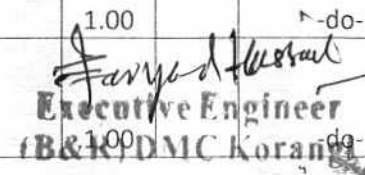 1.00 -do-
Faryad Hussain
Executive Engineer
(B&R) DMC Korangi
1.00 -do-